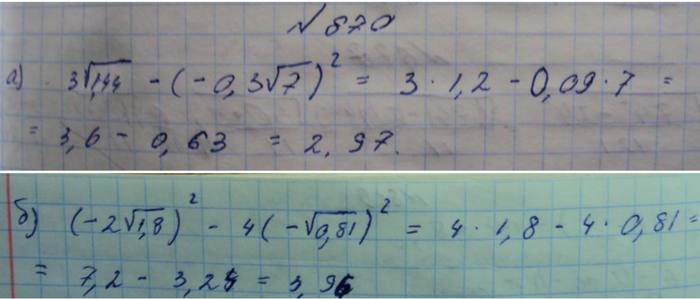 № 870
а) 3√1,44 - (-0,3√7)² = 3 · 1,2 - 0,09 · 7 =
= 3,6 - 0,63 = 2,97.
б) (-2√1,8)² - 4(-√0,81)² = 4 · 1,8 - 4 · 0,81 =
= 7,2 - 3,24 = 3,96